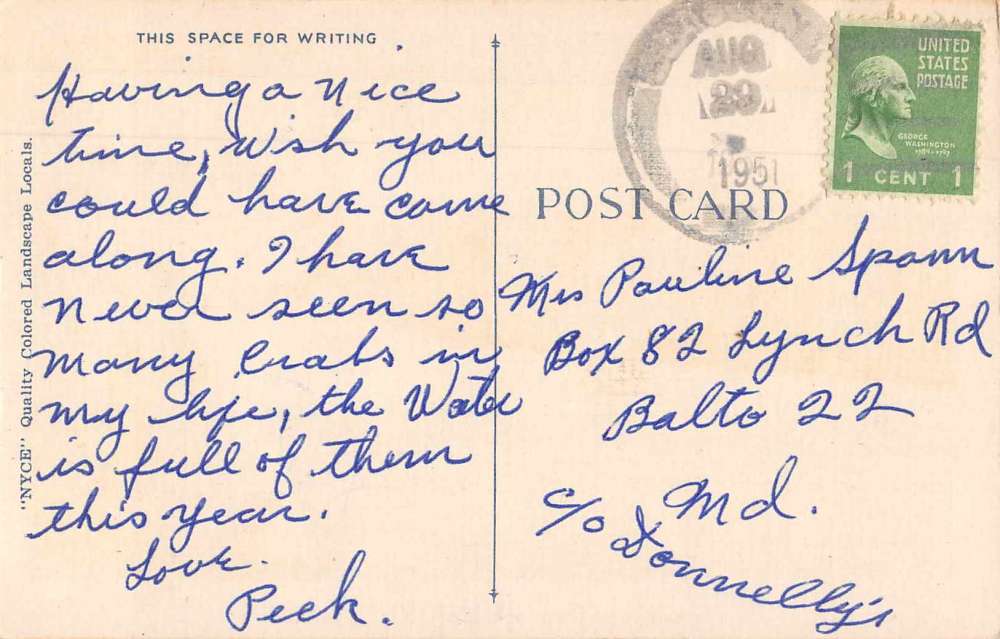 THIS SPACE FOR WRITING
Having a nice
time, wish you
could have come
along. I have
never seen so
many crabs in
my life, the Water
is full of them
this year.
Love.
Peck.
"NYCE" Quality Colored Landscape Locals.
AUG
29
1951
UNITED
STATES
POSTAGE
GEORGE
WASHINGTON
1789-1797
1 CENT 1
POST CARD
Mrs Pauline Spann
Box 82 Lynch Rd
Balto 22
Md.
c/o Donnelly's